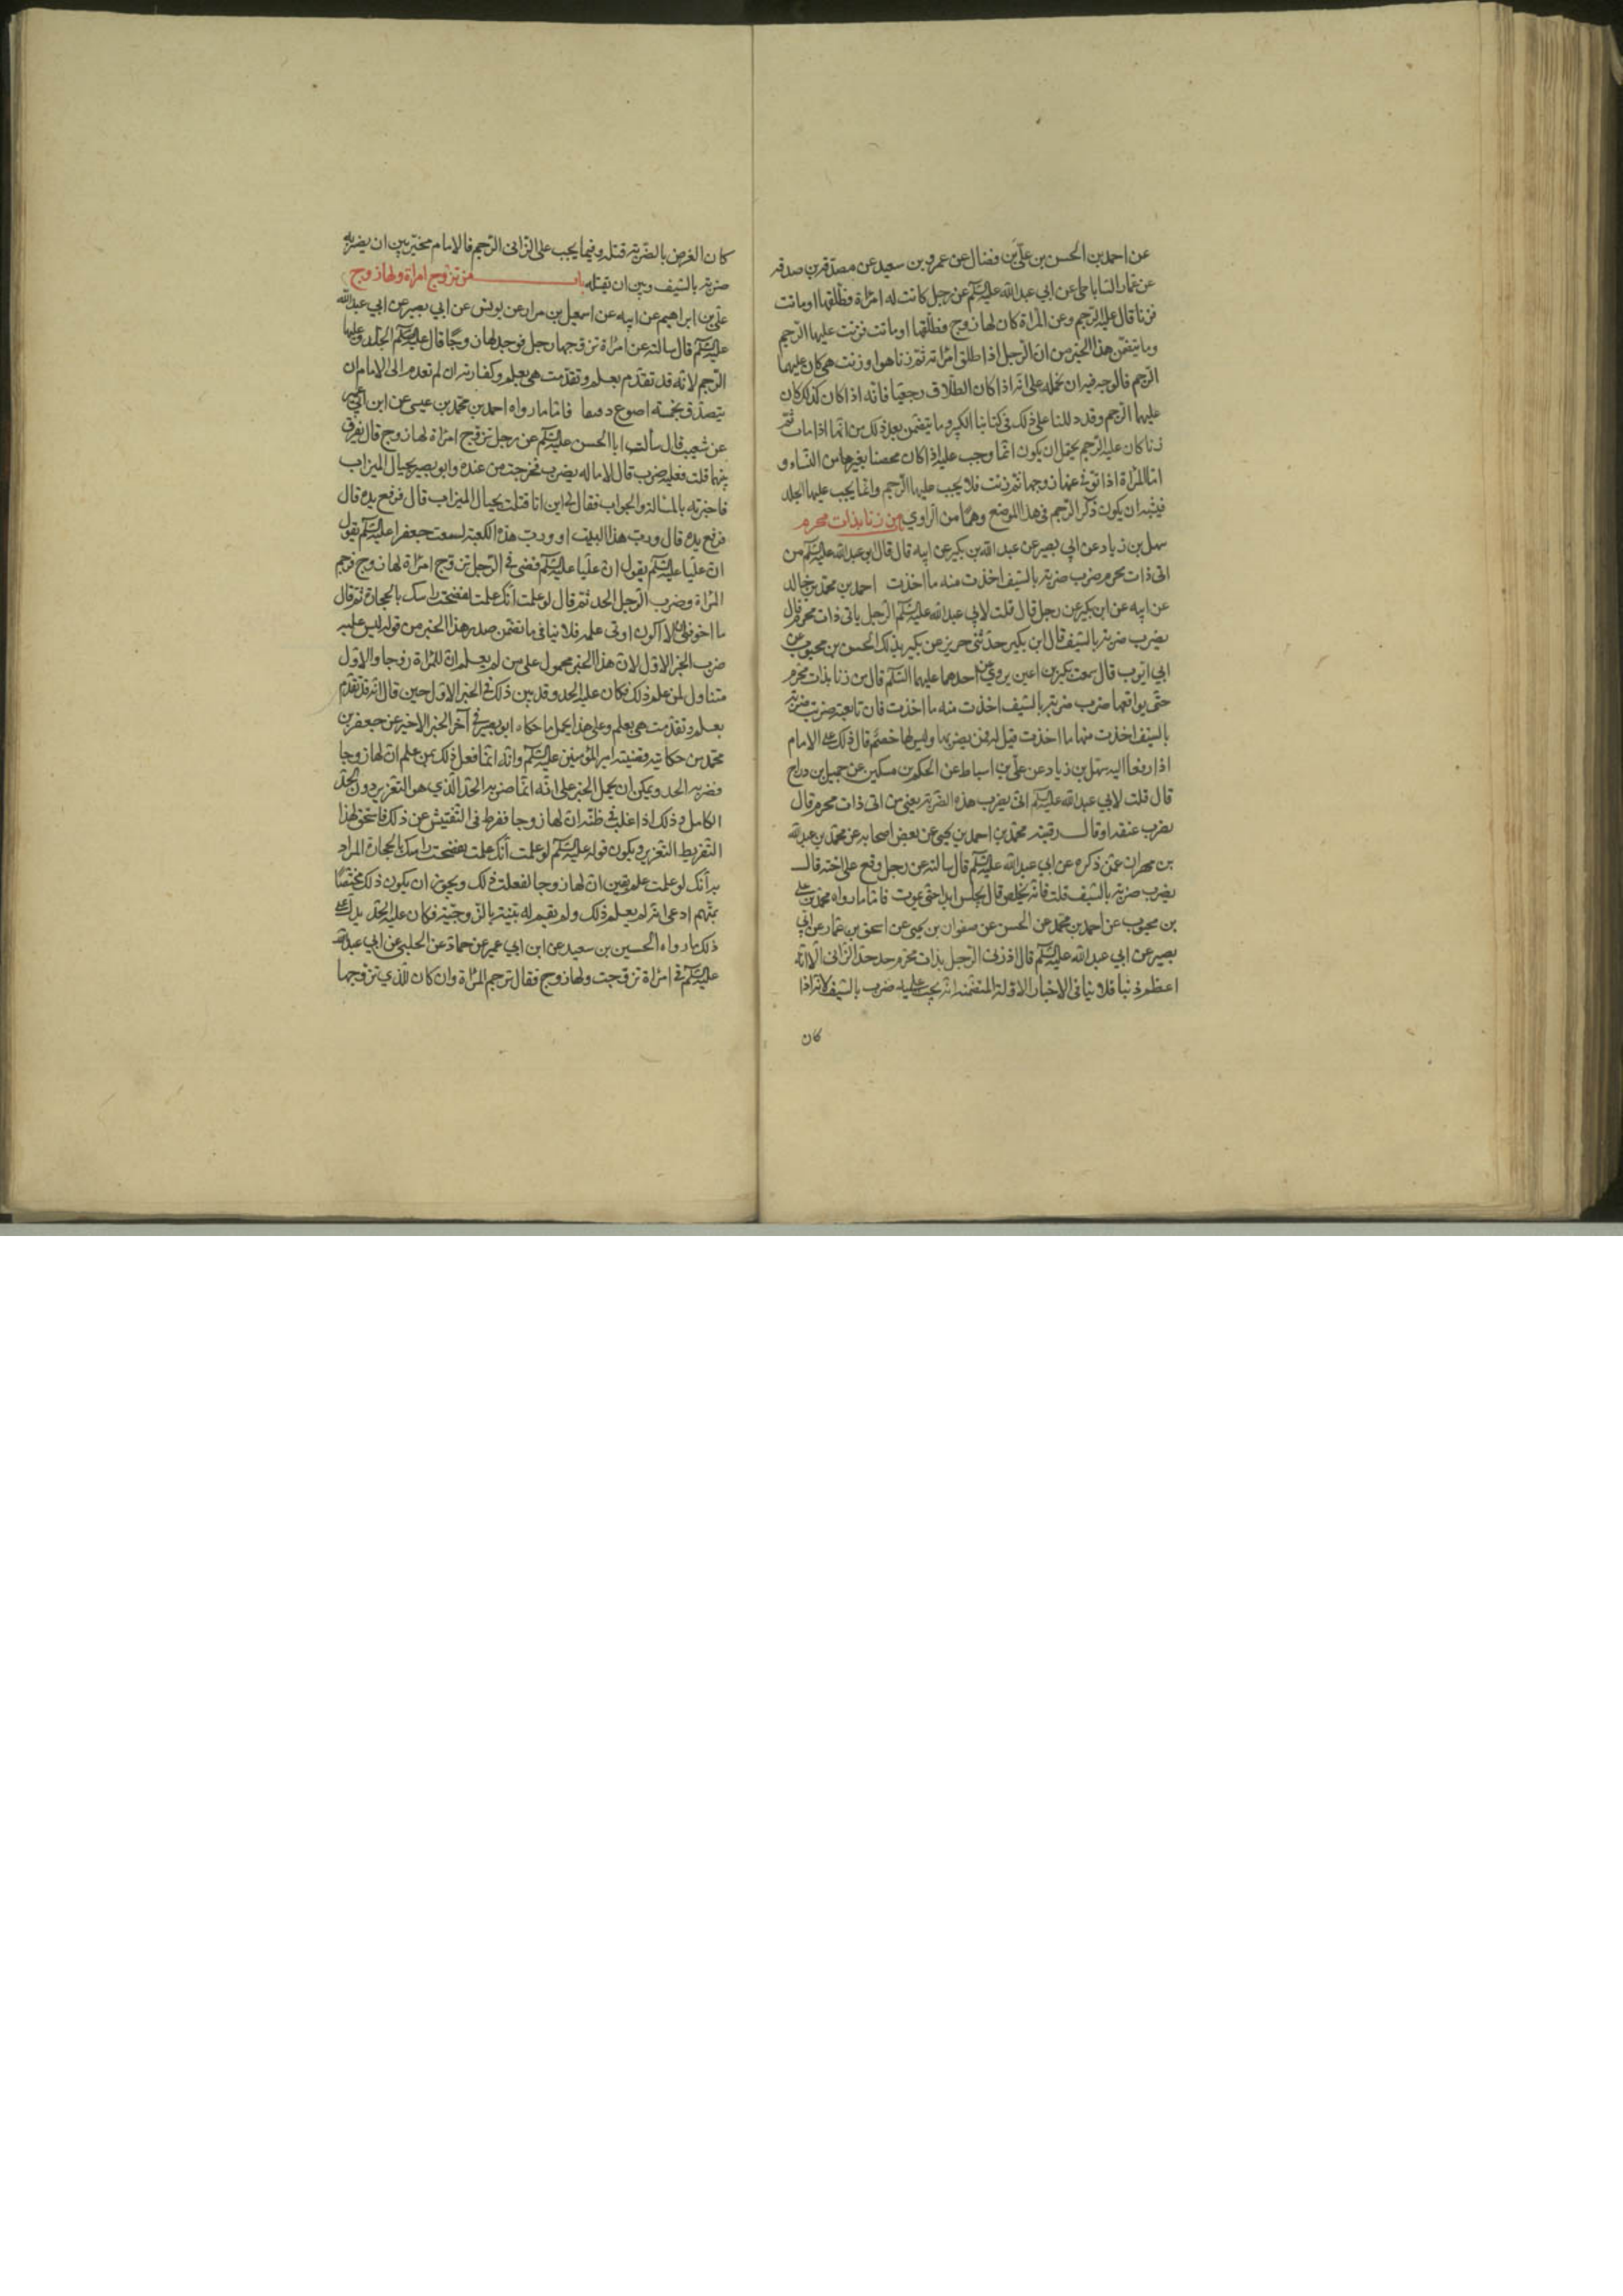 عن احمد بن الحسن بن علي بن فضال عن عمرو بن سعيد عن مصدق بن صدقه
عن عمار الساباطي عن ابي عبد الله عليه السلم عن رجل كانت له امراة فطلقها او ماتت
فزنا قال عليه الرجم وعن المراة كان لها زوج فطلقها او مات فزنت عليها الرجم
وما يتضمن هذا الخبر من ان الرجل اذا طلق امراته ثم زنا هو او زنت هي كان عليهما
الرجم فالوجه فيه ان نحمله على انه اذا كان الطلاق رجعيا فانه اذا كان كذلك كان
عليهما الرجم وقد دللنا على ذلك في كتابنا الكبير وما يتضمن بعد ذلك من انها اذا ماتت ثم
زنا كان عليه الرجم يحتمل ان يكون انما وجب عليه اذا كان محصنا بغيرها من النساء و
اما المراة اذا توفي عنها زوجها ثم زنت فلا يجب عليها الرجم وانما يجب عليها الجلد
فيشبه ان يكون ذكر الرجم في هذا الموضع وهما من الراوي من زنا بذات محرم
سهل بن زياد عن ابي بصير عن عبد الله بن بكير عن ابيه قال قال ابو عبد الله عليه السلم من
اتى ذات محرم ضرب ضربة بالسيف اخذت منه ما اخذت احمد بن محمد بن خالد
عن ابيه عن ابن بكير عن رجل قال قلت لابي عبد الله عليه السلم الرجل ياتي ذات محرم قال
يضرب ضربة بالسيف قال ابن بكير حدثني حريز عن بكير بذلك الحسن بن محبوب عن
ابي ايوب قال سمعت بكير بن اعين يروي عن احدهما عليهما السلم قال من زنا بذات محرم
حتى يواقعها ضرب ضربة بالسيف اخذت منه ما اخذت فان تابعته ضربت ضربة
بالسيف اخذت منها ما اخذت قيل له فمن يضربهما وليس لها خصم قال ذلك على الامام
اذا رفعا اليه سهل بن زياد عن علي بن اسباط عن الحكم بن مسكين عن جميل بن دراج
قال قلت لابي عبد الله عليه السلم اين يضرب هذه الضربة يعني من اتى ذات محرم قال
يضرب عنقه او قال رقبته محمد بن احمد بن يحيى عن بعض اصحابه عن محمد بن عبد الله
بن مهران عمن ذكره عن ابي عبد الله عليه السلم قال سالته عن رجل وقع على اخته قال
يضرب ضربة بالسيف قلت فانه يخلص قال يحبس ابدا حتى يموت فاما ما رواه محمد بن علي
بن محبوب عن احمد بن محمد عن الحسن عن صفوان بن يحيى عن اسحق بن عمار عن ابي
بصير عن ابي عبد الله عليه السلم قال اذا زنى الرجل بذات محرم حد حد الزاني الا انه
اعظم ذنبا فلا ينافي الاخبار الاولة المتضمنة انه يجب عليه ضرب بالسيف لانه اذا
كان
كان الغرض بالضربة قتله وفيما يجب على الزاني الرجم فالامام مخير بين ان يضربه
ضربة بالسيف وبين ان يقتله باب من تزوج امراة ولها زوج
علي بن ابراهيم عن ابيه عن اسمعيل بن مرار عن يونس عن ابي بصير عن ابي عبد الله
عليه السلم قال سالته عن امراة تزوجها رجل فوجد لها زوجا قال عليه السلم الجلد وعليها
الرجم لانه قد تقدم بعلم وتقدمت هي بعلم وكفارته ان لم تقدم الى الامام ان
يتصدق بخمسة اصوع دقيقا فاما ما رواه احمد بن محمد بن عيسى عن ابن ابي عمير
عن شعيب قال سألت ابا الحسن عليه السلم عن رجل تزوج امراة لها زوج قال يفرق
بينهما قلت فعليه ضرب قال لا ما له يضرب فخرجت من عنده وابو بصير بحيال الميزاب
فاخبرته بالمسالة والجواب فقال لي اين انا قلت بحيال الميزاب قال فرفع يده قال
فرفع يده قال ورب هذا البيت او ورب هذه الكعبة لسمعت جعفرا عليه السلم يقول
ان عليا عليه السلم يقول ان عليا عليه السلم قضى في الرجل تزوج امراة لها زوج فرجم
المراة وضرب الرجل الحد ثم قال لو علمت انك علمت لفضخت راسك بالحجارة ثم قال
ما اخوفني الا اكون اوتي علمه فلا ينافي ما تضمن صدر هذا الخبر من قوله ليس عليه
ضرب الخبر الاول لان هذا الخبر محمول على من لم يعلم ان للمراة زوجا والاول
متناول لمن علم ذلك فكان عليه الحد وقد بين ذلك في الخبر الاول حين قال انه قد تقدم
بعلم وتقدمت هي بعلم وعلى هذا يحمل ما حكاه ابو بصير في آخر الخبر الاخير عن جعفر بن
محمد من حكايته قضيته امير المؤمنين عليه السلم وانه انما فعل ذلك بمن علم ان لها زوجا
فضربه الحد ويمكن ان يحمل الخبر على انه انما ضربه الحد الذي هو التعزير دون الحد
الكامل وذلك اذا غلب في ظنه ان لها زوجا ففرط في التفتيش عن ذلك فاستحق لهذا
التفريط التعزير ويكون قوله عليه السلم لو علمت انك علمت لفضخت راسك بالحجارة المراد
به انك لو علمت علم يقين ان لها زوجا لفعلت ذلك ويجوز ان يكون ذلك مختصا
بمتهم ادعى انه لم يعلم ذلك ولم يقم له بينة بالزوجية فكان عليه الحد يدل على
ذلك ما رواه الحسين بن سعيد عن ابن ابي عمير عن حماد عن الحلبي عن ابي عبد الله
عليه السلم في امراة تزوجت ولها زوج فقال ترجم المراة وان كان للذي تزوجها